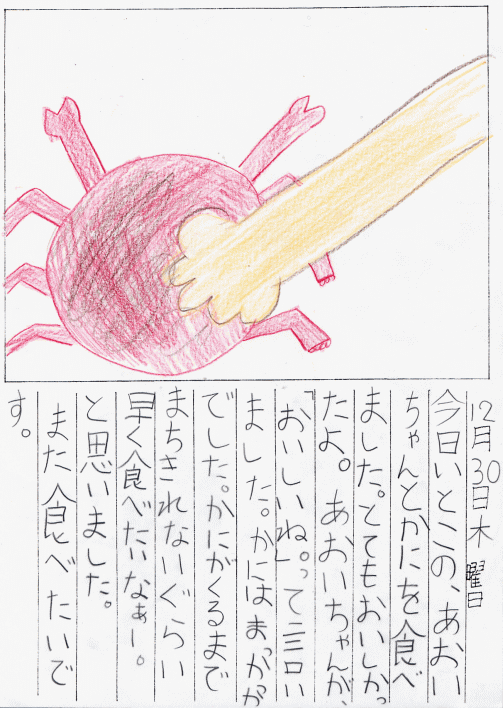 12月30日木曜日
今日いとこの、あおい
ちゃんとかにを食べ
ました。とてもおいしかっ
たよ。あおいちゃんが、
「おいしいね。」って言い
ました。かにはまっかが
でした。かにがくるまで
まちきれないぐらい
早く食べたいなぁー。
と思いました。
また食べたいで
す。